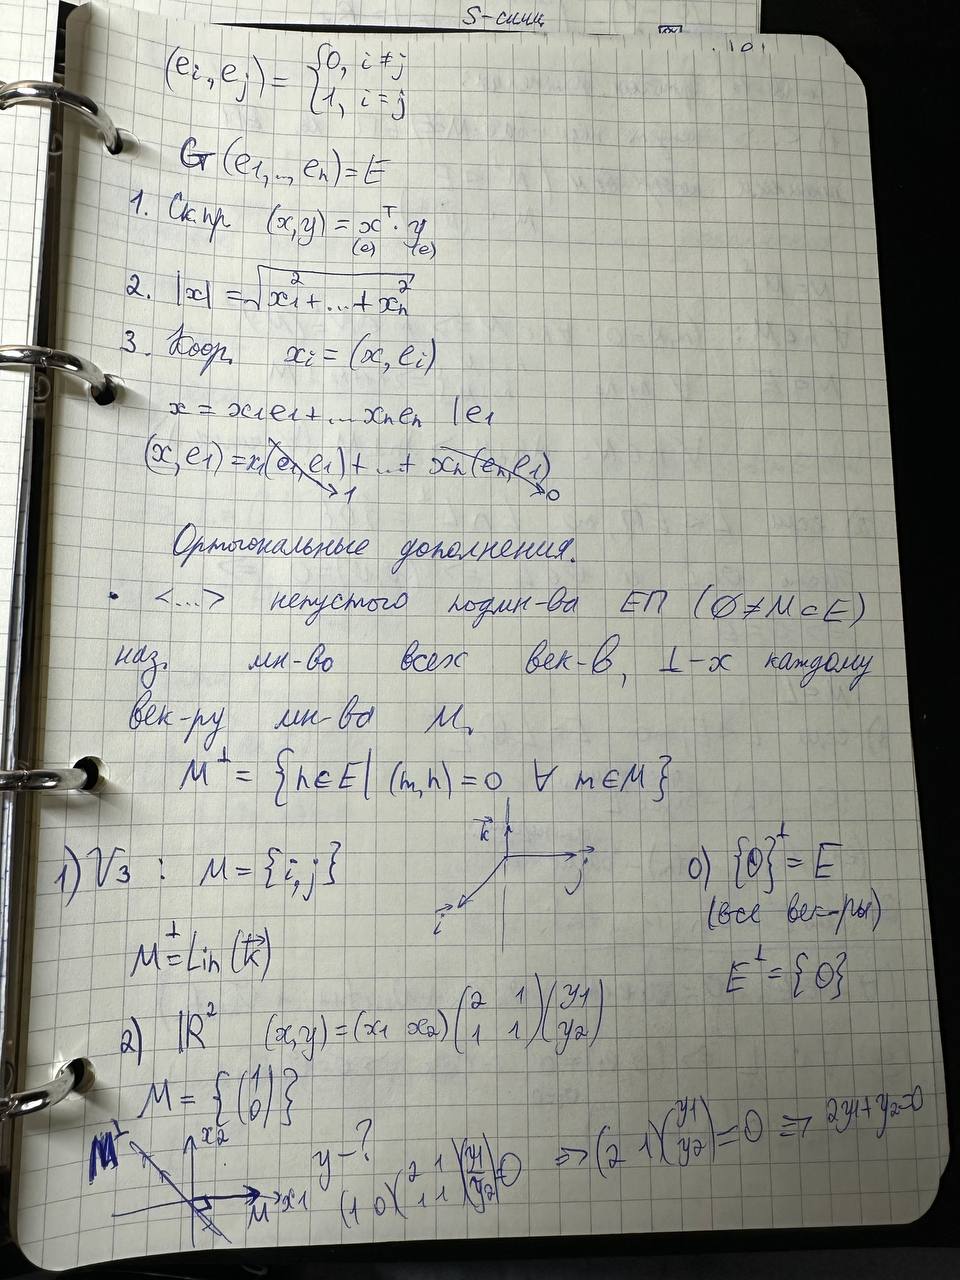 S-симм
(ei, ej) = {0, i ≠ j
1, i = j
G(e1,..., en) = E
1. Ск.пр (x,y) = xᵀ · y
(e) (e)
2. |x| = √(x1² + ... + xn²)
3. Коор. xi = (x, ei)
x = x1e1 + ... xnen | e1
(x, e1) = x1(e1, e1) + ... + xn(en, e1)
1 0
Ортогональные дополнения.
• <...> непустого подмн-ва ЕП (∅ ≠ M ⊂ E)
наз. мн-во всех век-в, ⊥-х каждому
век-ру мн-ва M.
M^⊥ = {n ∈ E | (m, n) = 0 ∀ m ∈ M}
1) V3 : M = {i, j}
k⃗
j⃗
i⃗
0) {0}^⊥ = E
(все век-ры)
M^⊥ = Lin(k⃗)
E^⊥ = {0}
2) ℝ² (x,y) = (x1 x2) (2 1
1 1) (y1
y2)
M = {(1
0)}
M^⊥
x2
M x1
y - ?
(1 0) (2 1
1 1) (y1
y2) = 0 => (2 1) (y1
y2) = 0 => 2y1 + y2 = 0